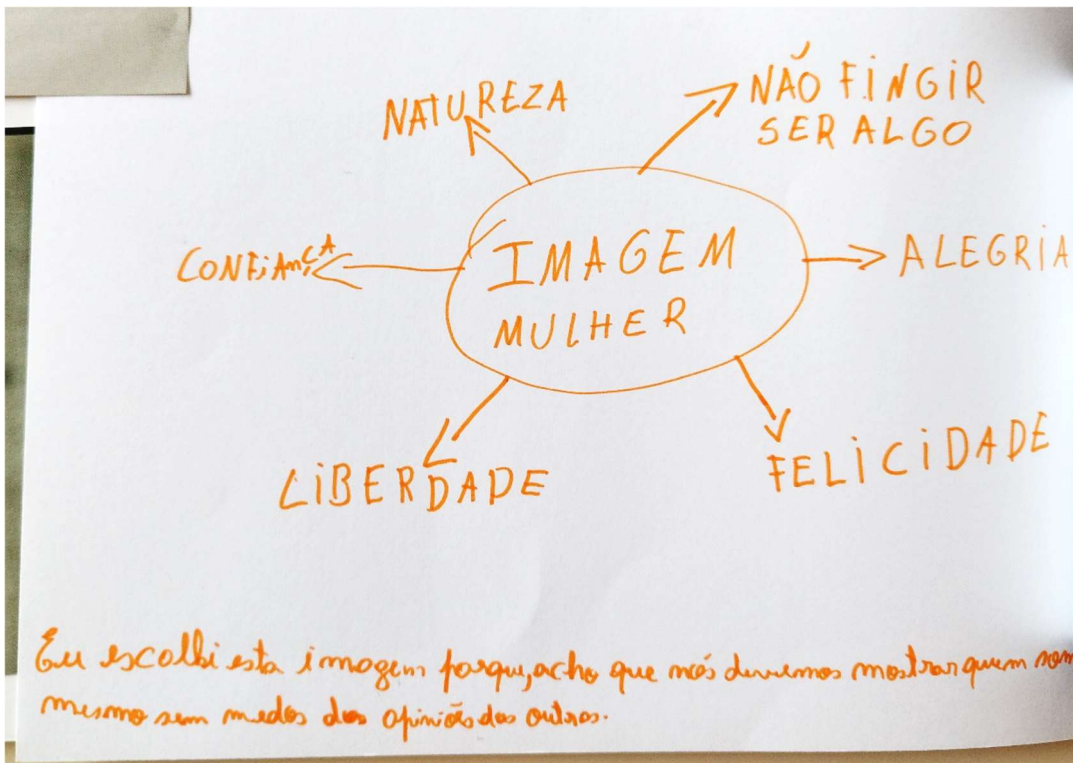 NATUREZA
NÃO FINGIR
SER ALGO
CONFIANÇA
IMAGEM
MULHER
ALEGRIA
LIBERDADE
FELICIDADE
Eu escolhi esta imagem porqu, acho que nós devemos mostrar quem som
mesmo sem medos das opiniões dos outros.